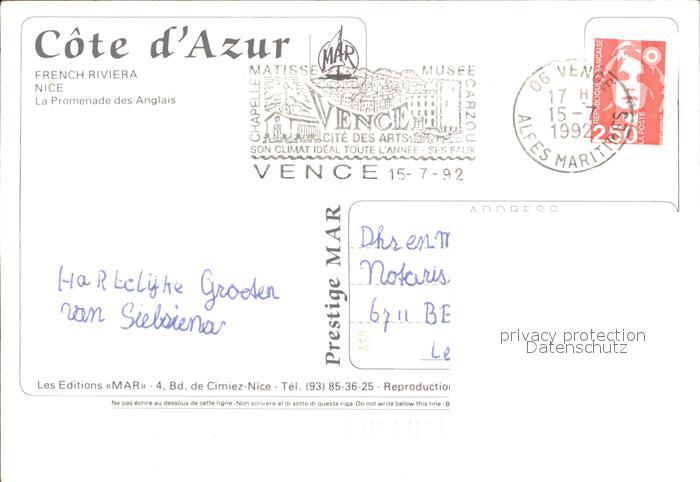 Côte d'Azur
FRENCH RIVIERA
NICE
La Promenade des Anglais
MAR
CHAPELLE MATISSE MUSEE CARZOU
VENCE
CITÉ DES ARTS
SON CLIMAT IDÉAL TOUTE L'ANNÉE - SES EAUX
VENCE 15-7-92
06 VENCE
17 H
15-7
1992
ALPES MARITIMES
REPUBLIQUE FRANÇAISE
2,50
LA POSTE
ADDRESS
Prestige MAR
Dhr en M
Notaris
6711 BE
Hartelijke Groeten
van
privacy protection
Datenschutz
Les Editions «MAR» - 4, Bd. de Cimiez-Nice - Tél. (93) 85-36-25 - Reproduction
Ne pas écrire au dessous de cette ligne - Non scrivere al di sotto di questa riga - Do not write below this line - B